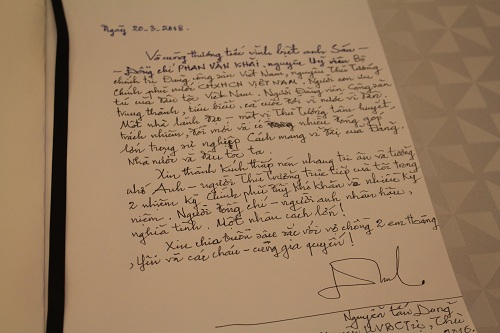 Ngày 20-3-2018.
Vô cùng thương tiếc vĩnh biệt anh Sáu -
- Đồng chí PHAN VĂN KHẢI, nguyên Uỷ viên Bộ
chính trị Đảng cộng sản Việt Nam, nguyên Thủ Tướng
Chính phủ nước CHXHCN VIỆT NAM. Người con ưu
tú của dân tộc Việt Nam. Người Đảng viên Cộng sản
trung thành, tiêu biểu, cả cuộc đời vì nước vì dân.
Một nhà lãnh đạo - một vị Thủ Tướng tâm huyết,
trách nhiệm, đổi mới và có nhiều đóng góp
lớn trong sự nghiệp Cách mạng vĩ đại của Đảng.
Nhà nước và dân tộc ta.
Xin thành kính thắp nén nhang tri ân và tưởng
nhớ Anh - người Thủ Tướng trực tiếp của tôi trong
2 nhiệm kỳ Chính phủ đầy khó khăn và nhiều kỷ
niệm. Người đồng chí - người anh nhân hậu.
nghĩa tình. Một nhân cách lớn!
Xin chia buồn sâu sắc với vợ chồng 2 em Hoàng
, Yến và các cháu - cùng gia quyến!
Nguyễn Tấn Dũng
UVBCTrị, Thủ